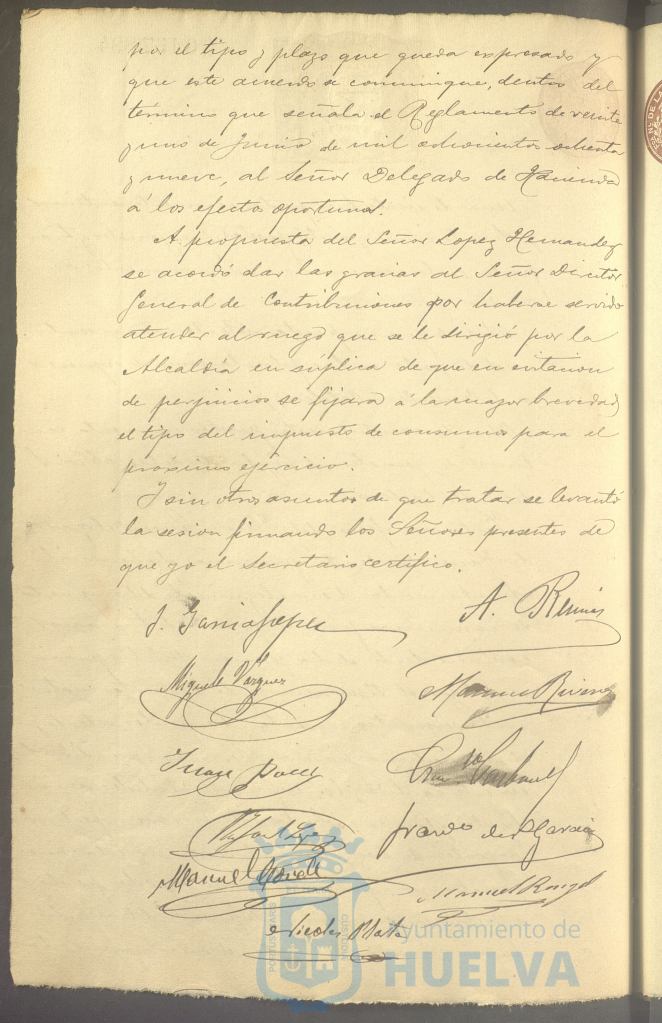 por el tipo y plazo que queda expresado y
que este acuerdo se comunique, dentro del
término que señala el Reglamento de veinte
y uno de Junio de mil ochocientos ochenta
y nueve, al Señor Delegado de Hacienda
á los efectos oportunos.
A propuesta del Señor Lopez Hernandez
se acordó dar las gracias al Señor Director
General de Contribuciones por haberse servido
atender al ruego que se le dirigió por la
Alcaldía en súplica de que en evitacion
de perjuicios se fijara á la mayor brevedad
el tipo del impuesto de consumos para el
próximo ejercicio.
Y sin otros asuntos de que tratar se levantó
la sesion firmando los Señores presentes de
que yo el Secretario certifico.
J. Garcia Lopez
A.
Miguel Vazquez
Manuel Rivera
Juan
Rafael Lopez
Franco de P Garcia
Manuel
Manuel Rangel
Nicolas Plata
PORTUS MARIS
Ayuntamiento de
HUELVA